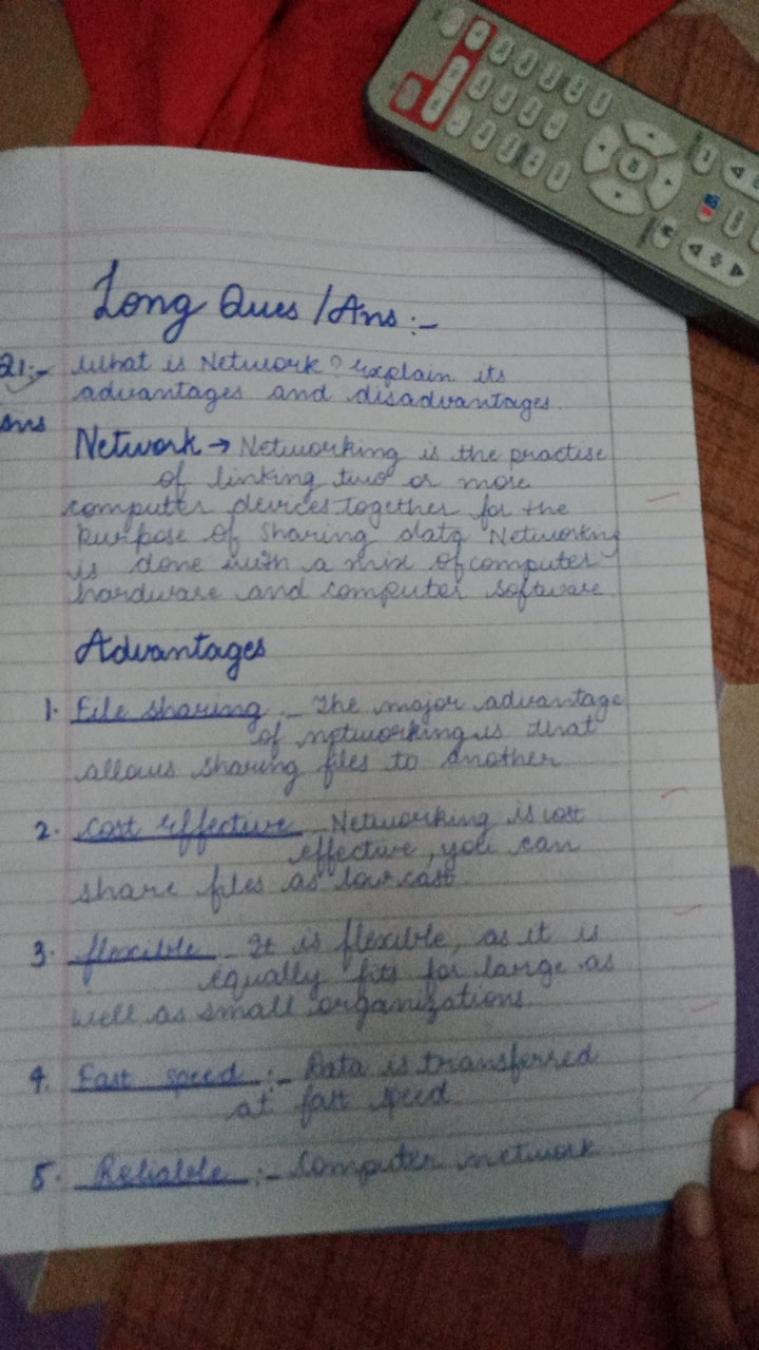 Long Ques/Ans:-
Q1:- What is Network? Explain its
advantages and disadvantages.
Ans
Network → Networking is the practise
of linking two or more
computer devices together for the
purpose of sharing data Networking
is done with a mix of computer
hardware and computer software.
Advantages
1. File sharing - The major advantage
of networking is that
allows sharing files to another
2. Cost effective - Networking is cost
effective, you can
share files as low cost
3. flexible - It is flexible, as it is
equally fits for large as
well as small organizations
4. Fast speed :- Data is transferred
at fast speed
5. Reliable :- Computer network